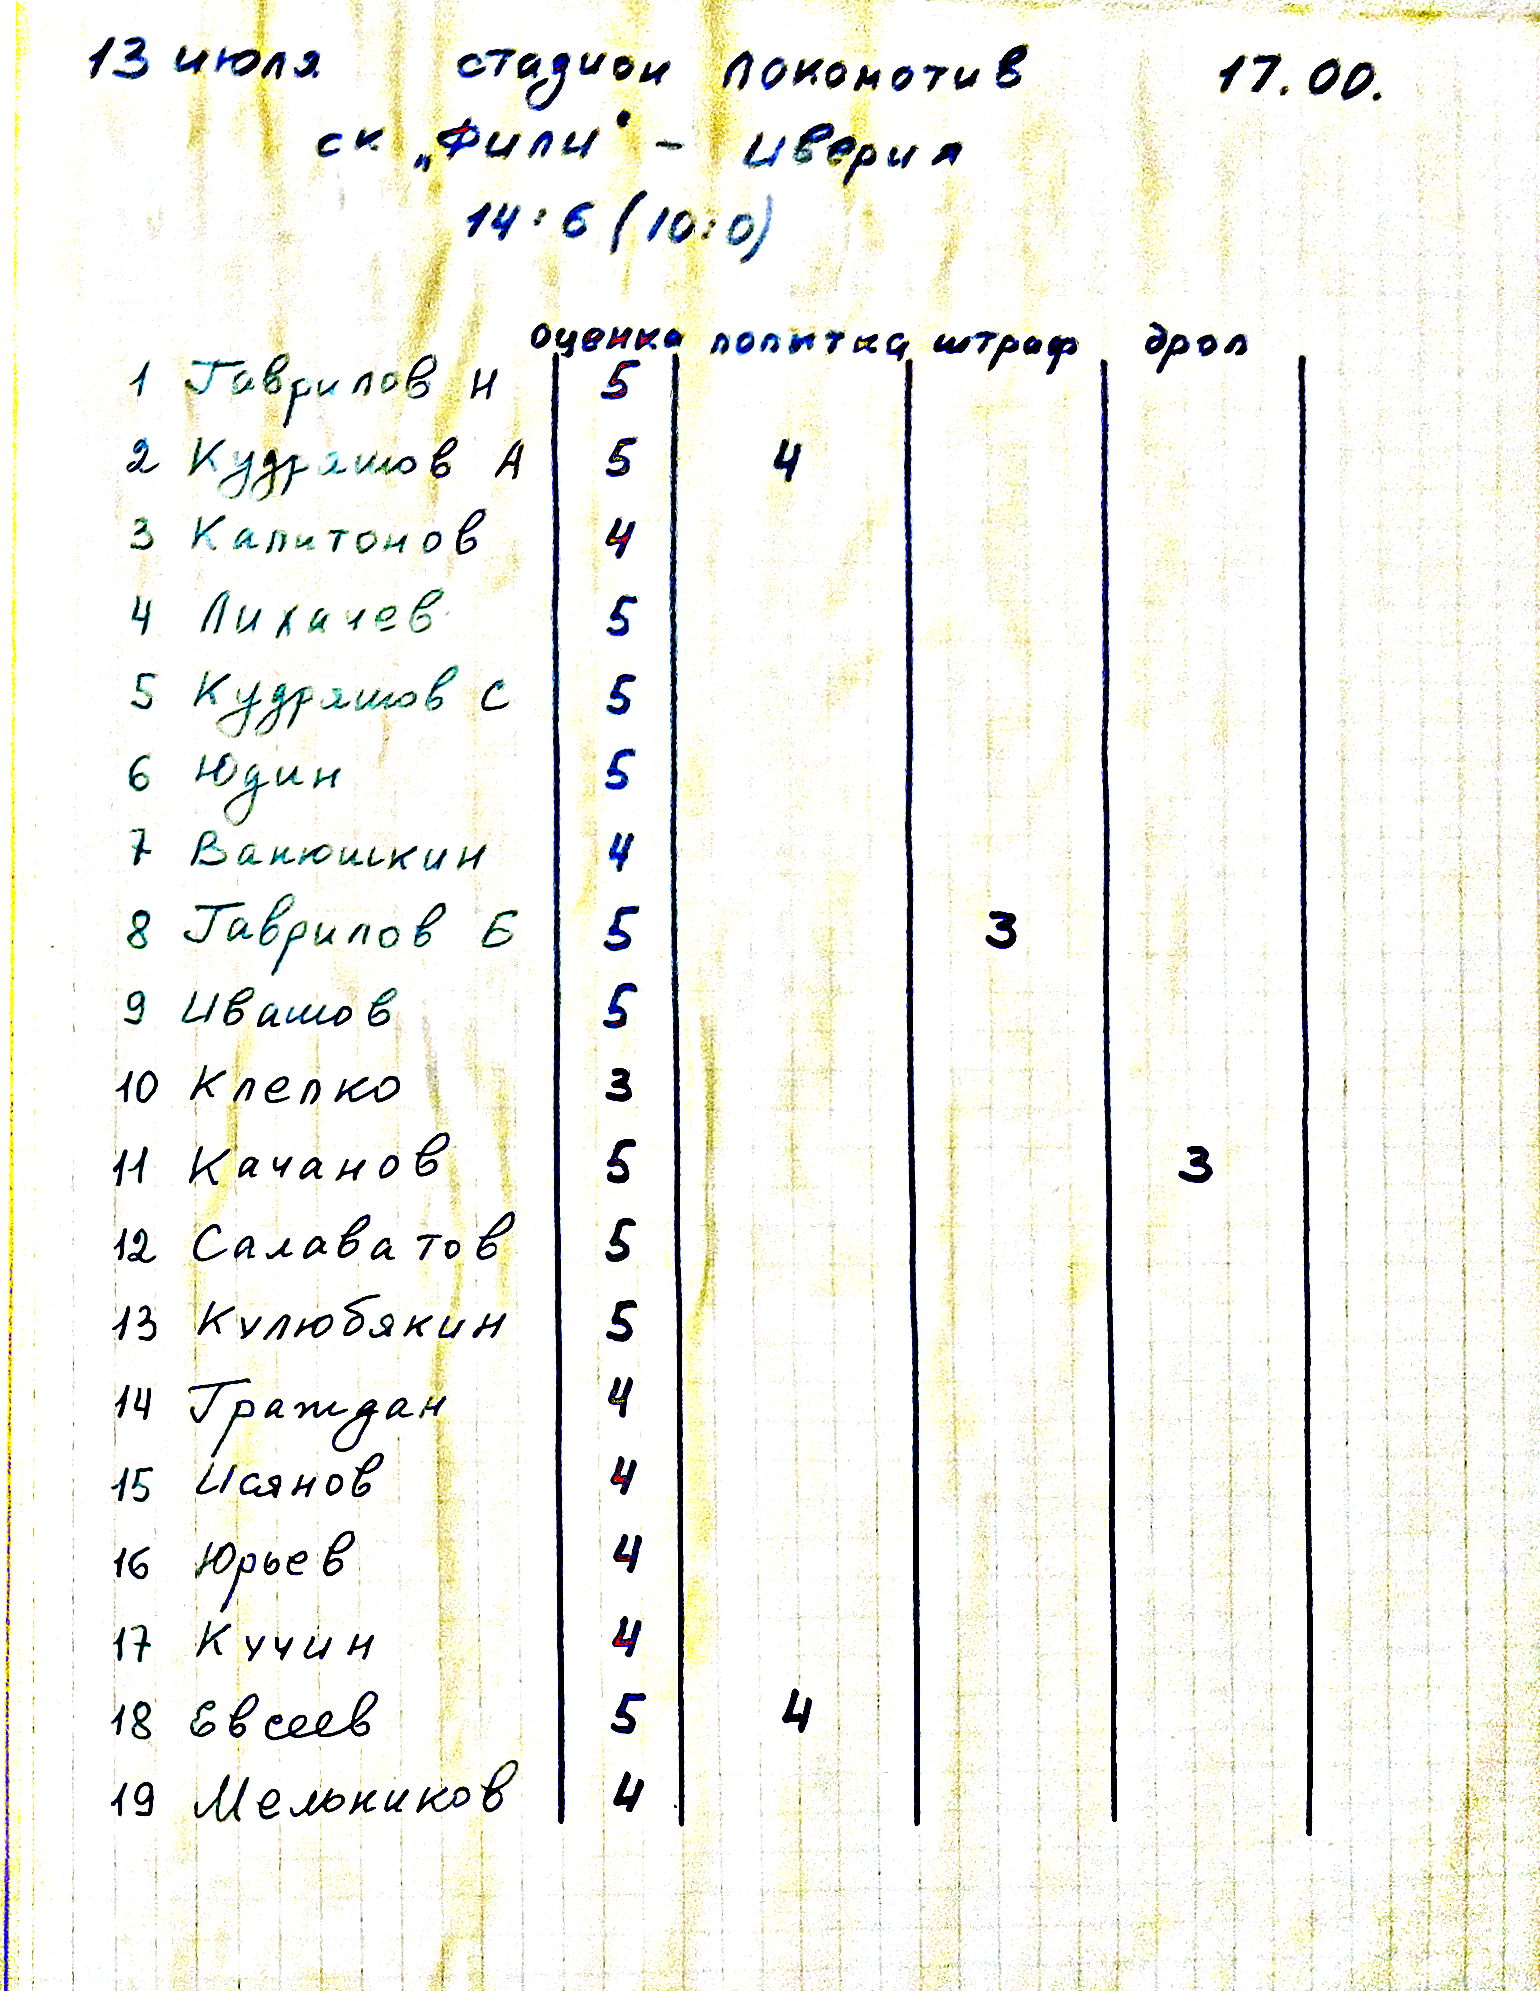 13 июля стадион Локомотив 17.00.
ск „Фили" - Иверия
14:6 (10:0)
оценка попытка штраф дроп
1 Гаврилов Н 5
2 Кудряшов А 5 4
3 Капитонов 4
4 Лихачев 5
5 Кудряшов С 5
6 Юдин 5
7 Ванюшкин 4
8 Гаврилов Б 5 3
9 Ивашов 5
10 Клепко 3
11 Качанов 5 3
12 Салаватов 5
13 Кулюбякин 5
14 Граждан 4
15 Исянов 4
16 Юрьев 4
17 Кучин 4
18 Евсеев 5 4
19 Мельников 4